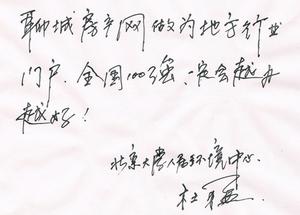 聊城房产网做为地方行业
门户、全国100强、一定会越办
越好！
北京大学人居环境中心
杜